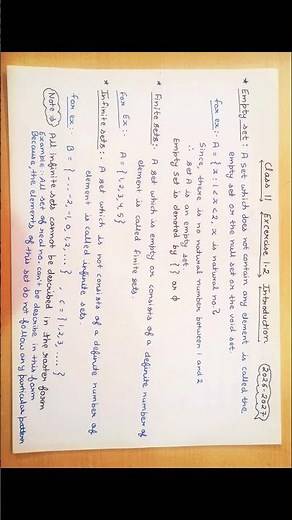 Class 11 Excercise 1.2 Introduction (2026-2027)
* Empty set : A set which does not contain any element is called the
empty set or the null set or the void set
for ex:- A = { x : 1 < x < 2, x is natural no }
Since, there is no natural number between 1 and 2
∴ set A is an empty set
Empty set is denoted by { } or φ
* Finite sets:- A set which is empty or consists of a definite number of
element is called finite sets
For Ex:- A = {1,2,3,4,5}
* Infinite sets:- A set which is not consists of a definite number of
element is called infinite sets.
for ex:- B = { ... -2,-1,0,1,2, ... } , C = { 1,2,3, .... }
Note :- All infinite sets cannot be described in the roaster form
Example :- All set of real no. can't be describe in this form
Because, the elements of this set do not follow any particular pattern